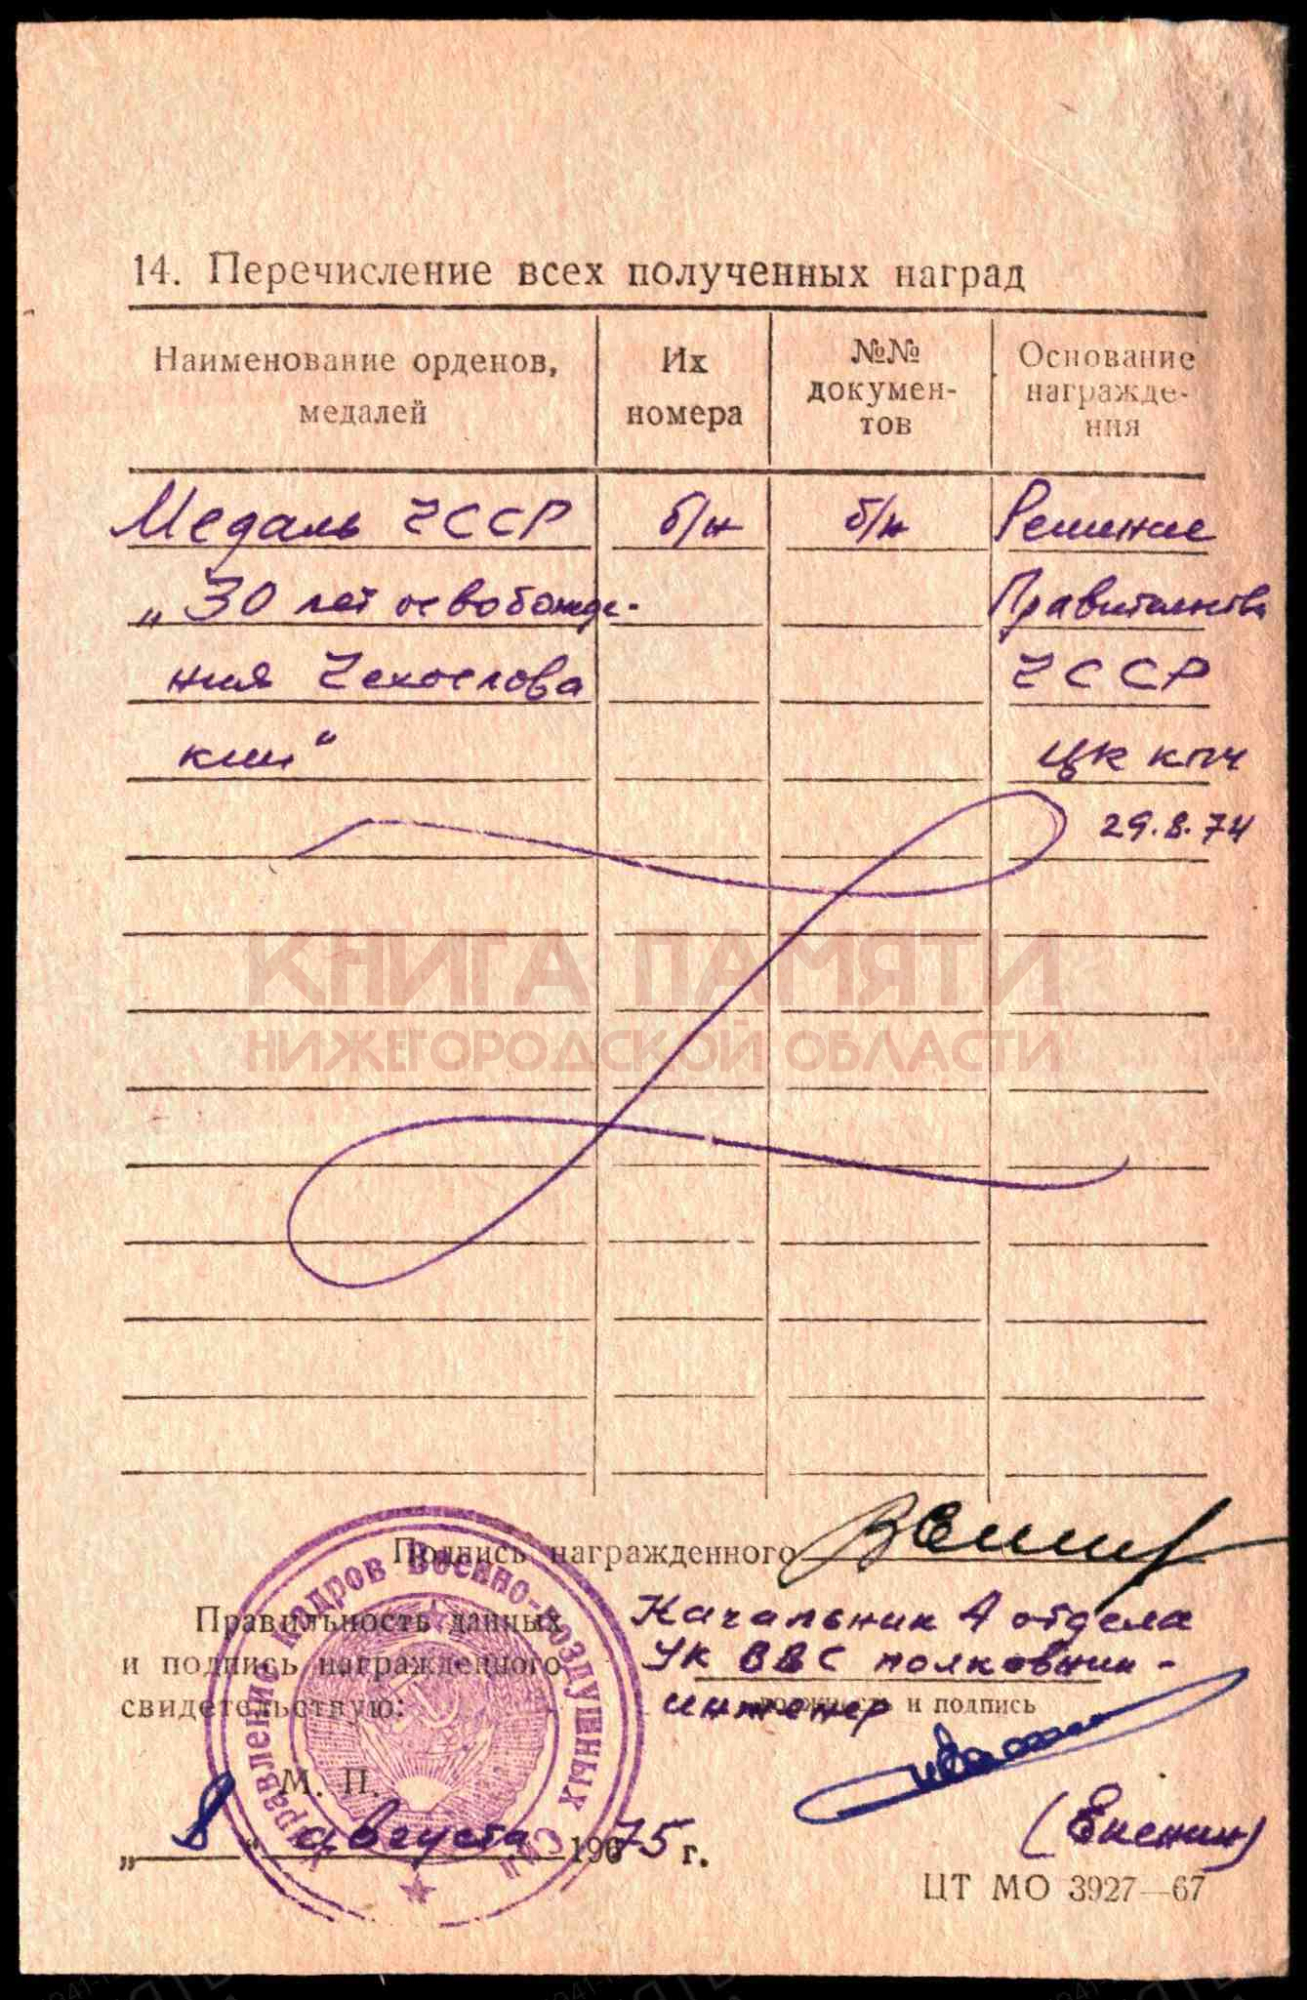 14. Перечисление всех полученных наград
Наименование орденов, медалей
Их номера
№№ докумен-тов
Основание награжде-ния
Медаль ЧССР б/н б/н Решение
„30 лет освобожде- Правительства
ния Чехослова ЧССР
кии“ ЦК КПЧ
29.8.74
КНИГА ПАМЯТИ
НИЖЕГОРОДСКОЙ ОБЛАСТИ
Подпись награжденного
Правильность данных Начальник 4 отдела
и подпись награжденного УК ВВС полковник-
свидетельствую: инженер
должность и подпись
Управление кадров Военно-воздушных Сил
М. П.
„8“ августа 1975 г.
ЦТ МО 3927—67